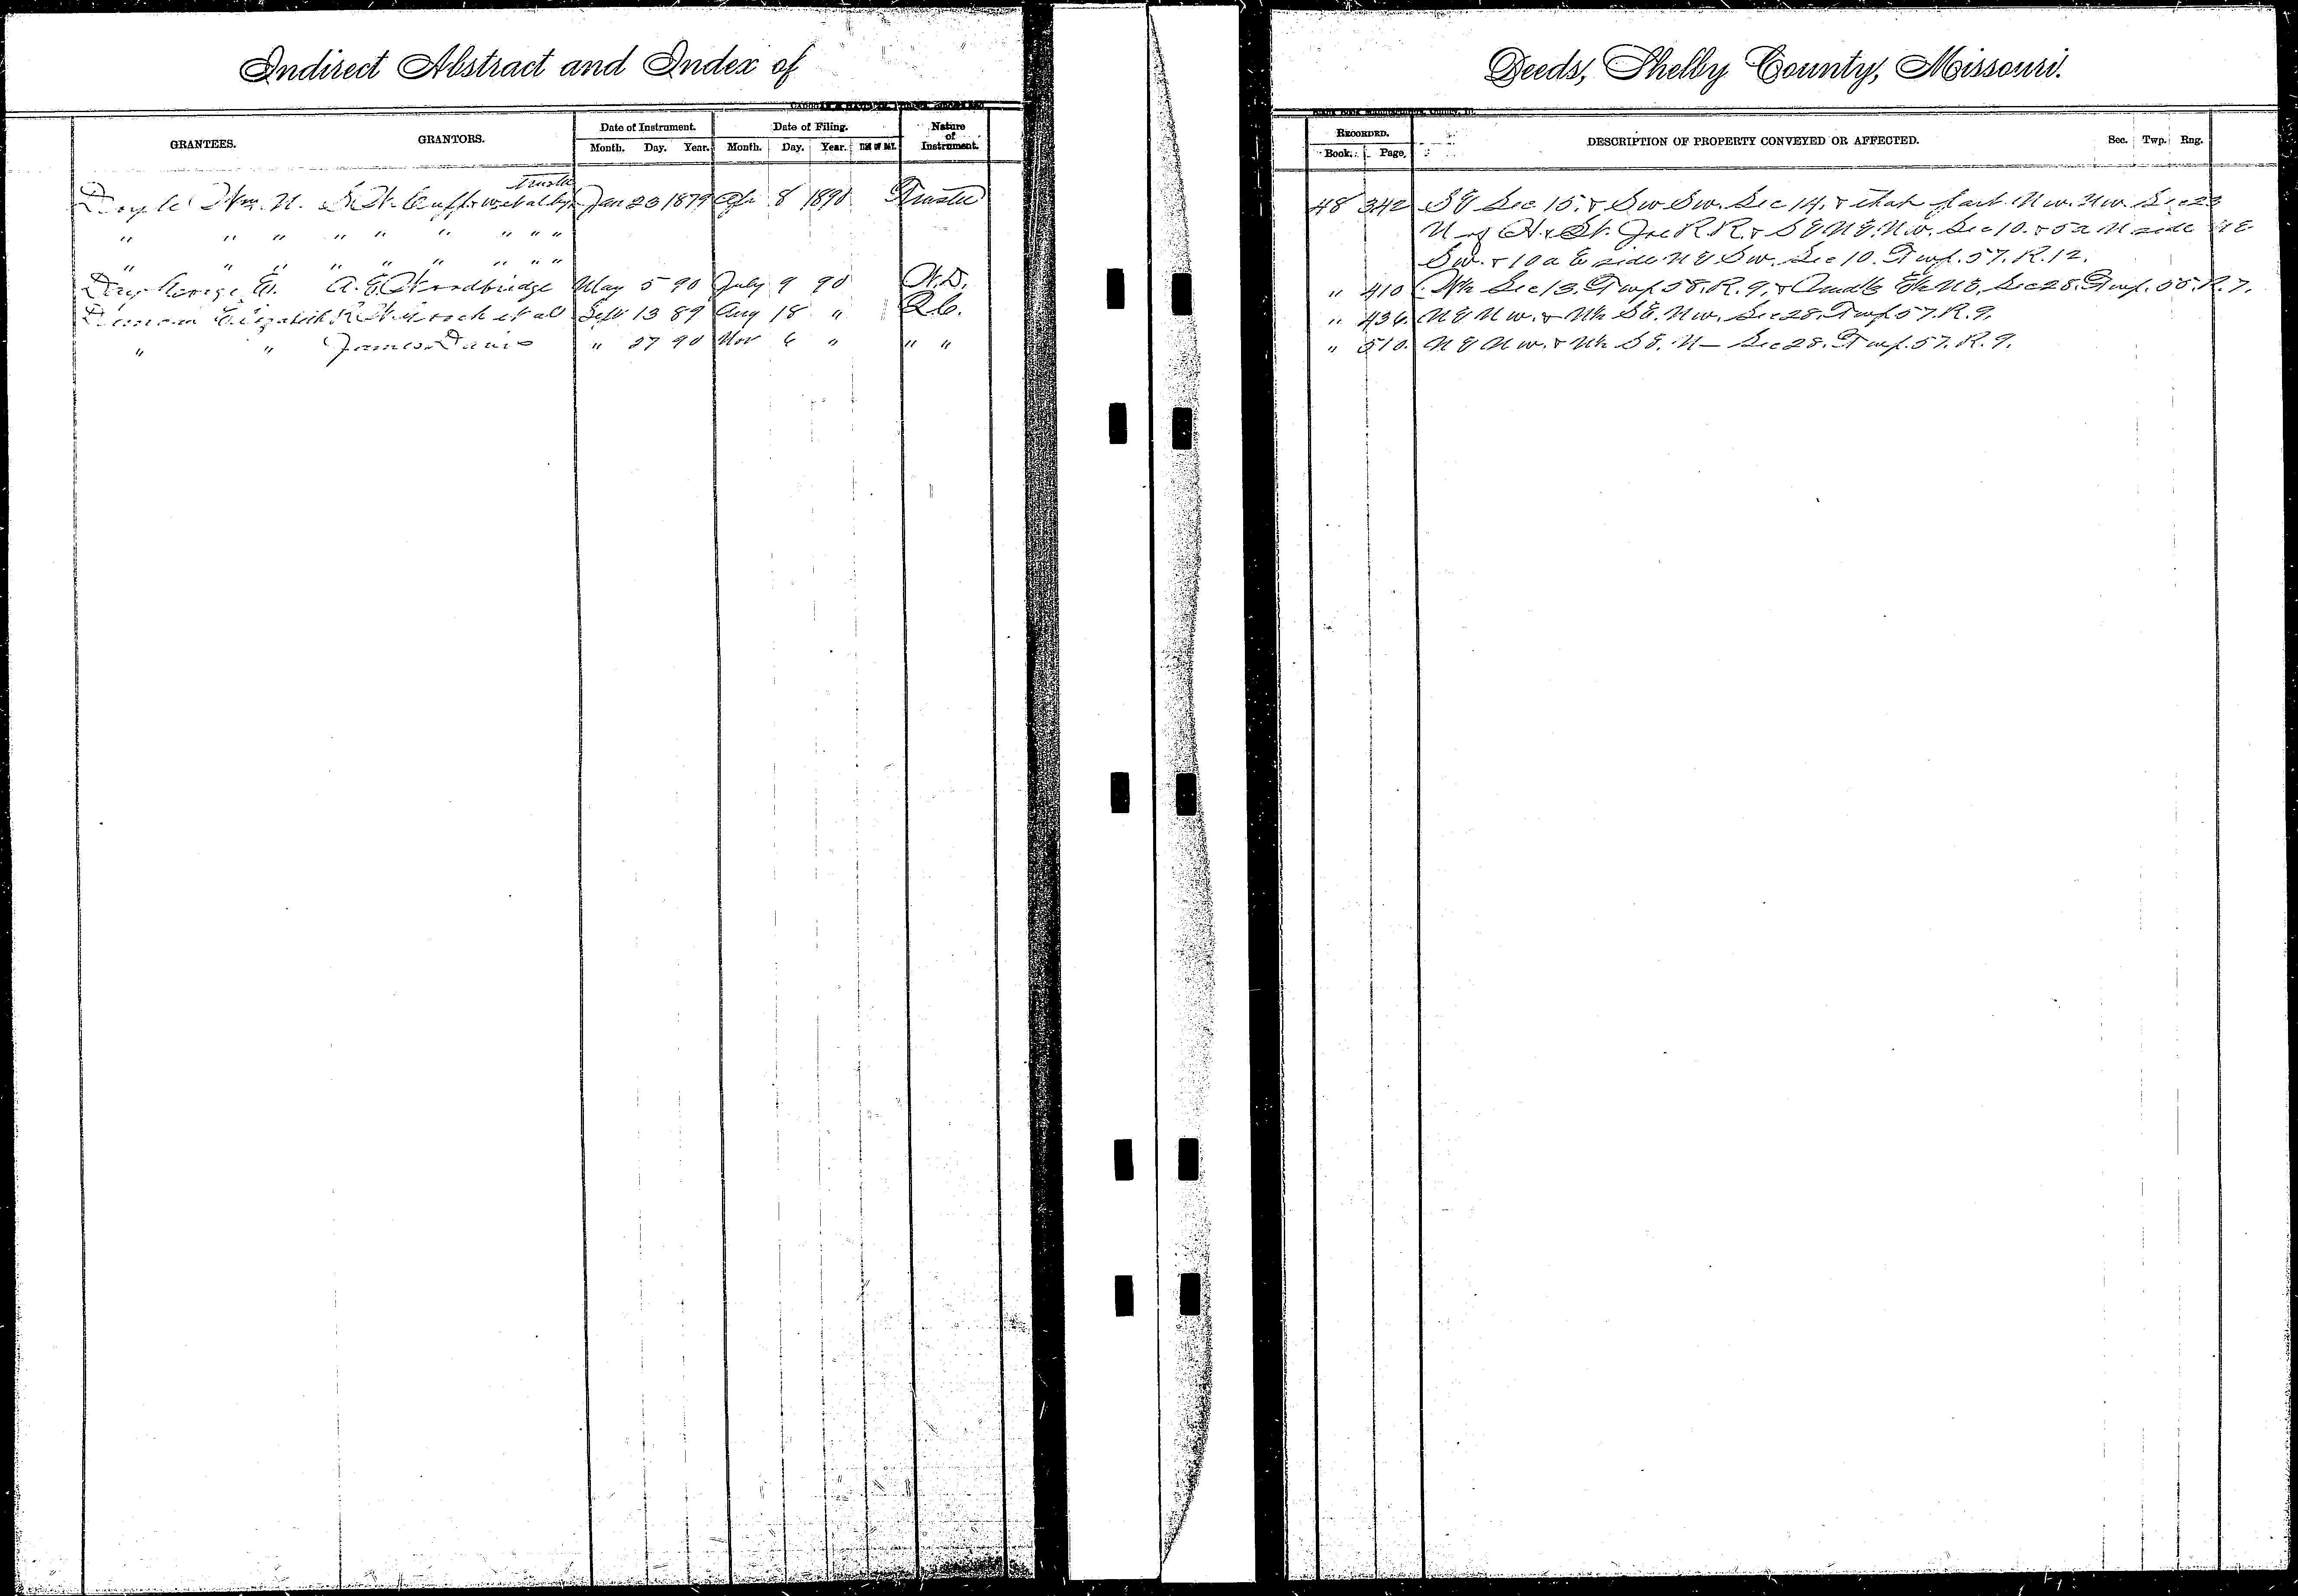 Indirect Abstract and Index of
Deeds, Shelby County, Missouri.
GRANTEES. GRANTORS. Date of Instrument. Date of Filing. Nature of Instrument.
Month. Day. Year. Month. Day. Year. TIME OF DAY.
RECORDED. DESCRIPTION OF PROPERTY CONVEYED OR AFFECTED. Sec. Twp. Rng.
Book. Page.
Trustee
Doyle Wm. N. et al by Jan 23 1879 Apr 8 1890 Trustee 48 342 S E Sec 15. & Sw Sw. Sec 14. & that part N w. N w. Sec 23
" " " " " " " " " N of H. & St. Joe R.R. & S E N E. N w. Sec 10. & 5 a N side N E
" " " " " " " " " Sw. & 10 a E side N E Sw. Sec 10. Twp. 57. R. 12.
Day George E. A. E. Woodbridge May 5 90 July 9 90 W.D. " 410 Sec 13. Twp. 58. R. 9. & N E. Sec 28. Twp. R. 7.
Duncan Elizabeth et al Sept 13 89 Aug 18 " Q C. " 436. N E N w. & N½ S E. N w. Sec 28. Twp 57. R. 9.
" " James Davis " 27 90 Nov 6 " " " " 510. N E N w. & N½ S E. N— Sec 28. Twp. 57. R. 9.